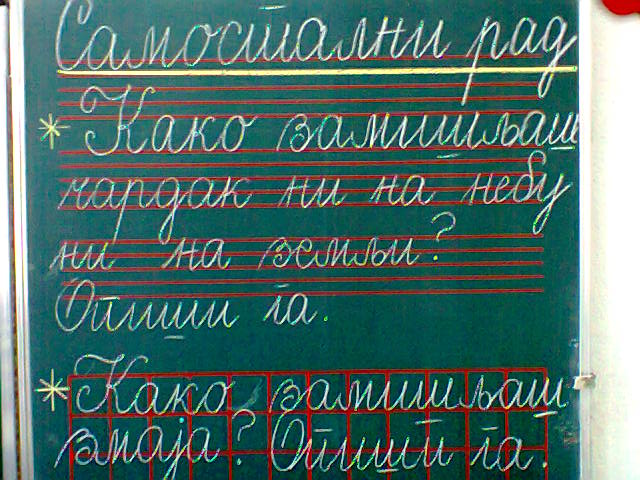 Самостални рад
* Како замишљаш
чардак ни на небу
ни на земљи?
Опиши га.
* Како замишљаш
змаја? Опиши га.